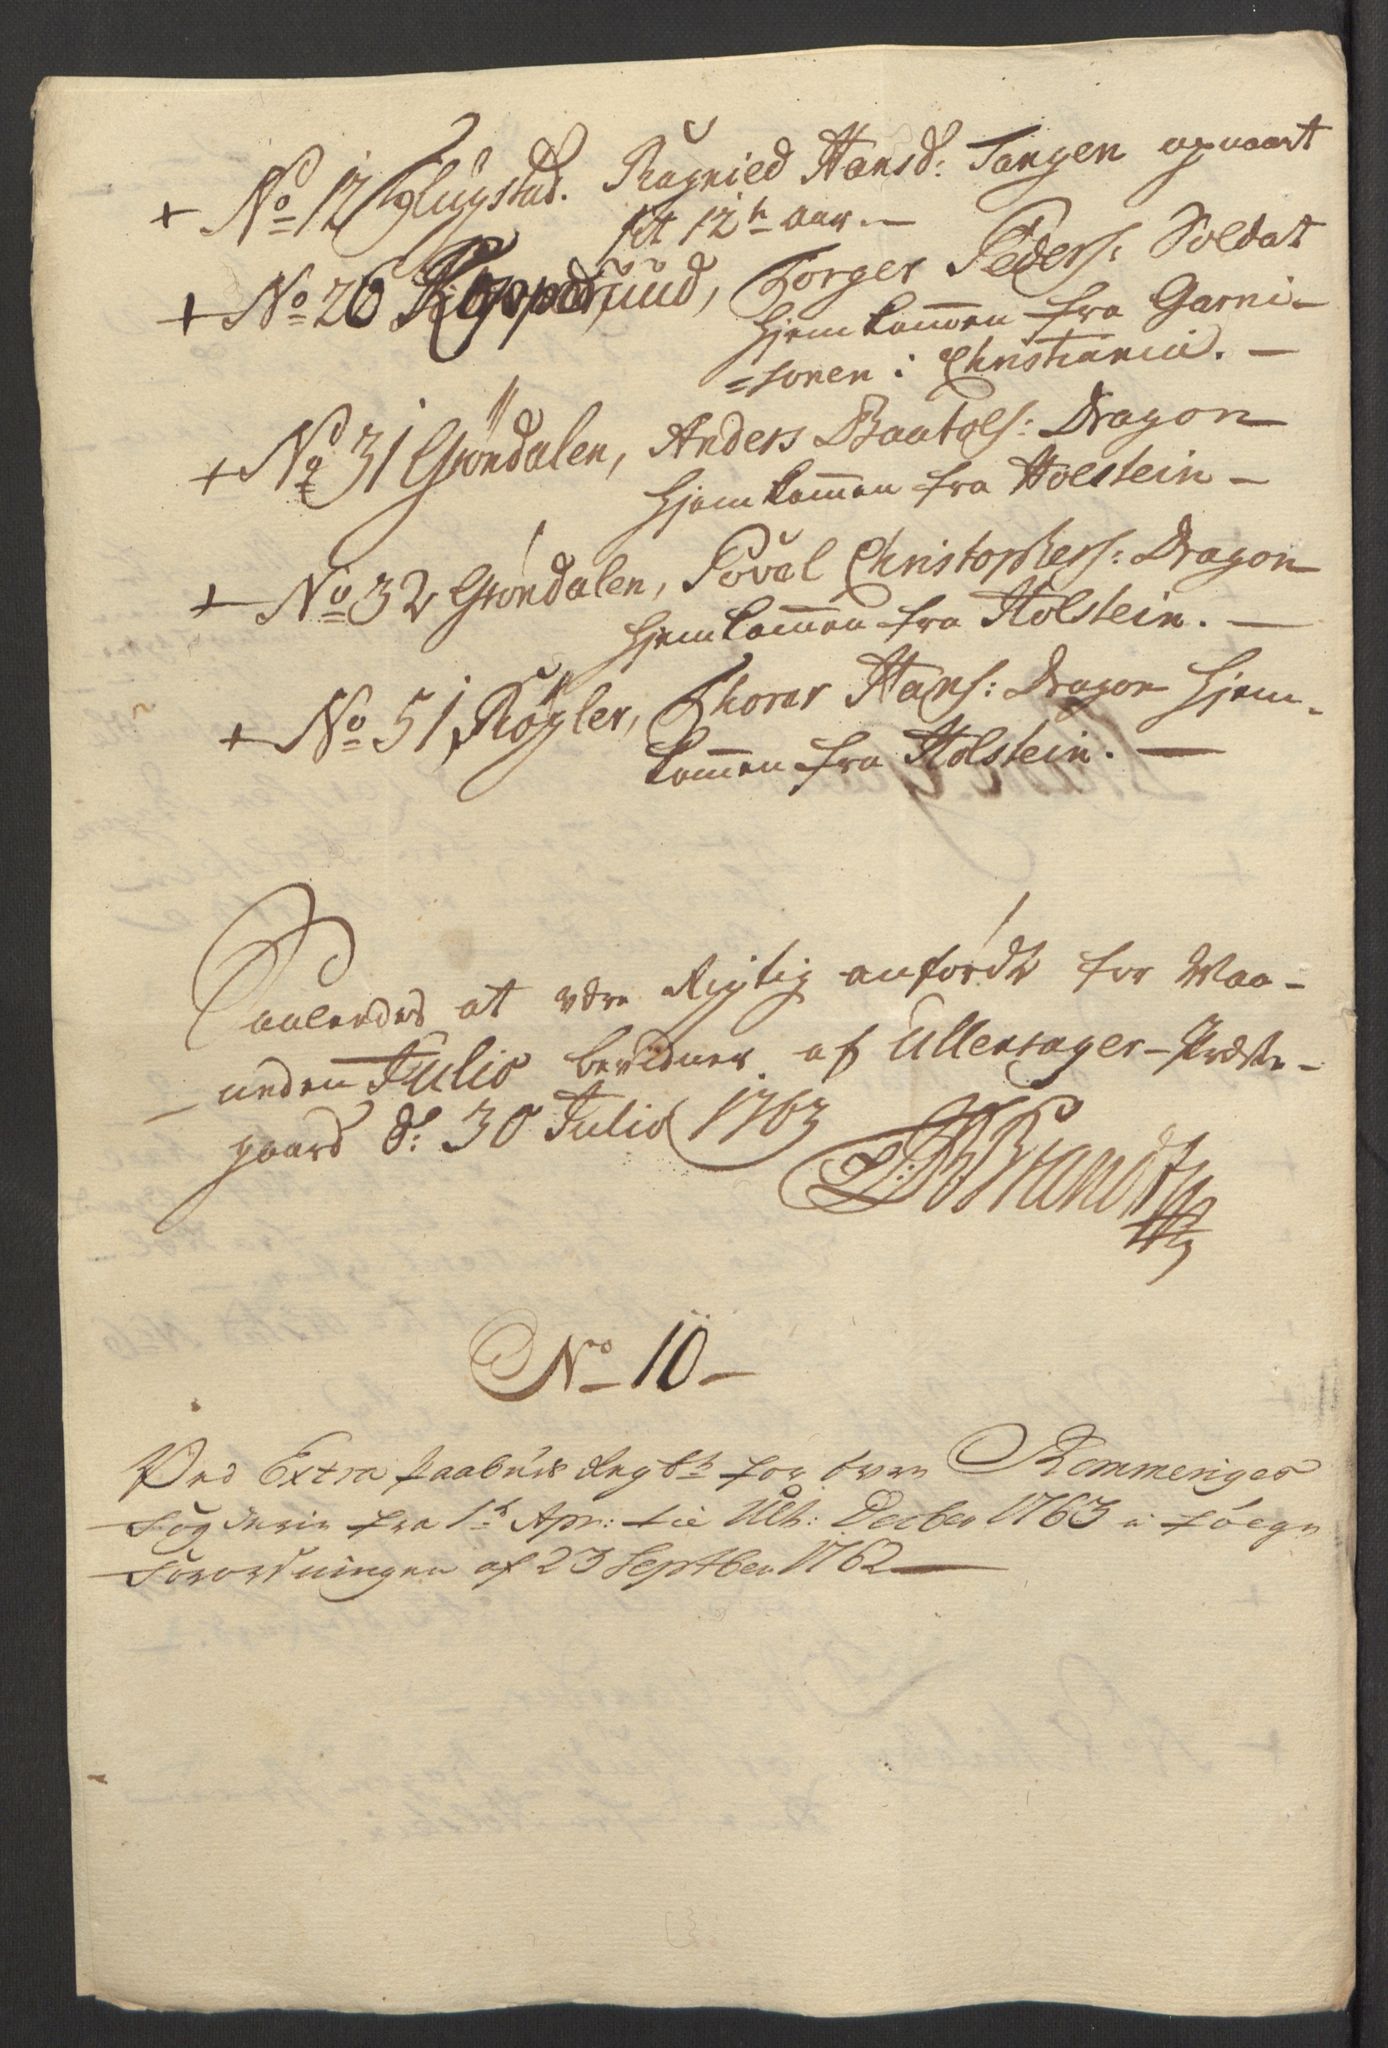 + No 12 Flugstad. Ragnied Hansd: Tangen opvaart
sit 12te aar. —
+ No 26 Kopperuud, Torger Peders: Soldat
hjemkommen fra Garni-
=sonen i Christiania. —
+ No 31 Gröndalen, Anders Baatols: Dragon
hjemkommen fra Holstein —
+ No 32 Gröndalen, Povel Christophers: Dragon
hjemkommen fra Holstein. —
+ No 51 Røgler, Thorer Hans: Dragon hjem-
kommen fra Holstein. —
Saaledes at være Rigtig anfördt for Maa-
neden Julio bevidner af Ullensager-Præste-
gaard d: 30 Julio 1763
Brandt
No 10 —
Ved Extra skattens for övre Rommeriges
Fogderie fra 1te Apr: til Ult: Decber 1763 i fölge
Forordningen af 23 Septber 1762 —